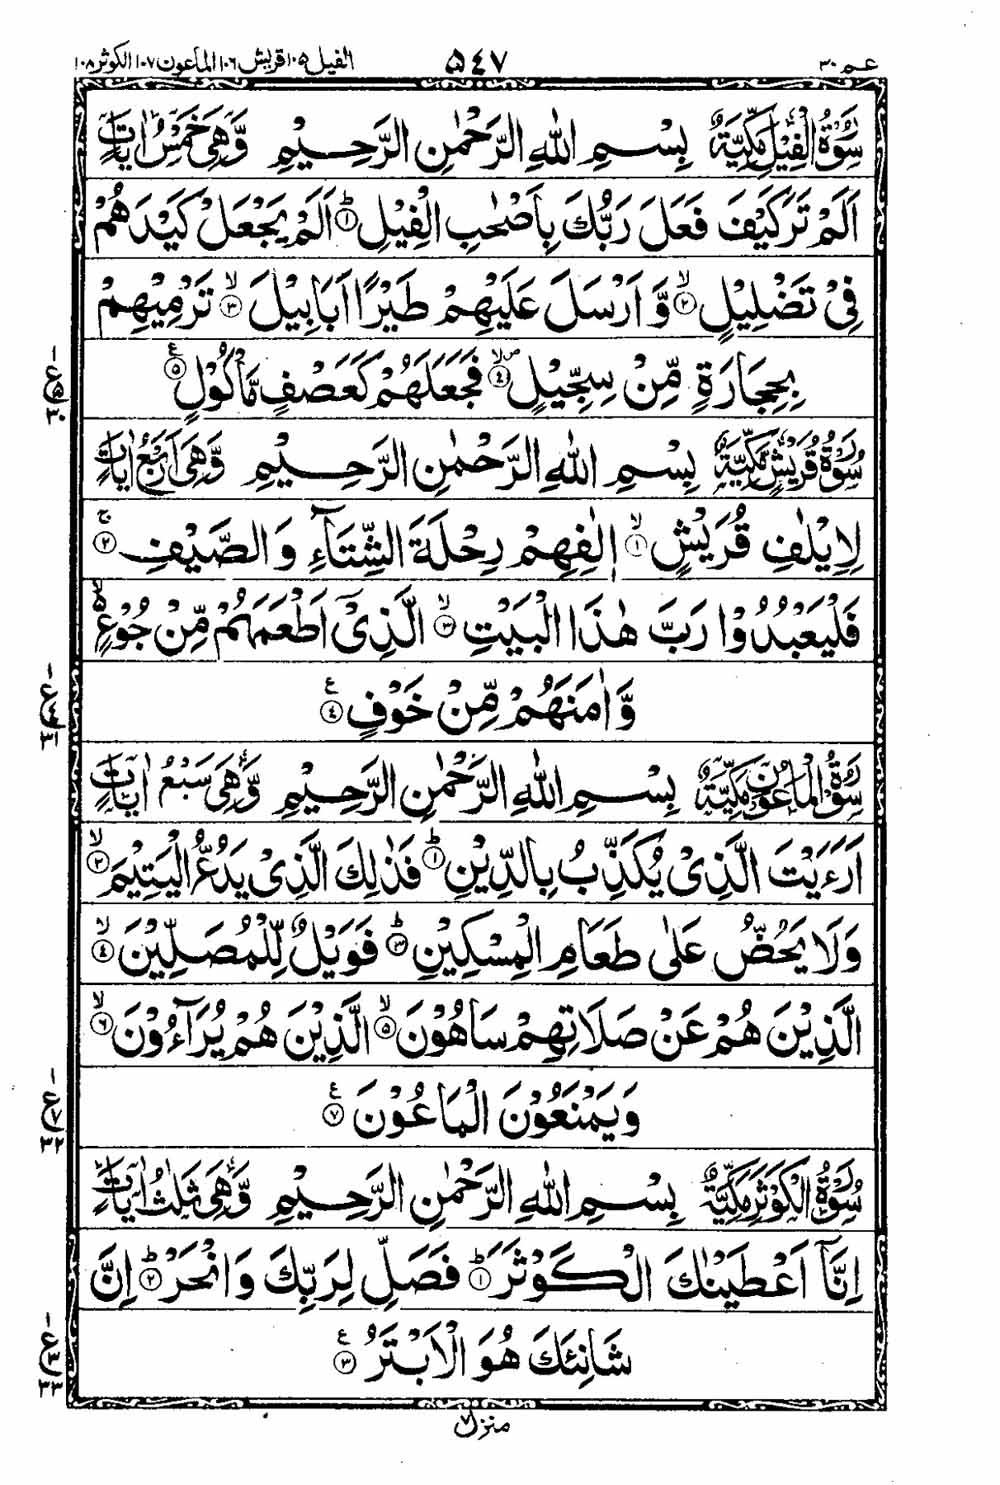 عـم ٣٠ ٥٤٧ الفيل ١٠٥ قريش ١٠٦ الماعون ١٠٧ الكوثر ١٠٨
سُوْرَةُ الْفِيْلِ مَكِّيَّةٌ بِسْمِ اللهِ الرَّحْمٰنِ الرَّحِيْمِ وَّهِيَ خَمْسُ اٰيَاتٍ
اَلَمْ تَرَ كَيْفَ فَعَلَ رَبُّكَ بِاَصْحٰبِ الْفِيْلِ ؕ﴿۱﴾ اَلَمْ يَجْعَلْ كَيْدَهُمْ
فِيْ تَضْلِيْلٍ ۙ﴿۲﴾ وَّ اَرْسَلَ عَلَيْهِمْ طَيْرًا اَبَابِيْلَ ۙ﴿۳﴾ تَرْمِيْهِمْ
بِحِجَارَةٍ مِّنْ سِجِّيْلٍ ۪ۙ﴿۴﴾ فَجَعَلَهُمْ كَعَصْفٍ مَّاْكُوْلٍ ﴿۵﴾ ع
سُوْرَةُ قُرَيْشٍ مَّكِّيَّةٌ بِسْمِ اللهِ الرَّحْمٰنِ الرَّحِيْمِ وَّهِيَ اَرْبَعُ اٰيَاتٍ
لِاِيْلٰفِ قُرَيْشٍ ۙ﴿۱﴾ اٖلٰفِهِمْ رِحْلَةَ الشِّتَآءِ وَ الصَّيْفِ ۚ﴿۲﴾
فَلْيَعْبُدُوْا رَبَّ هٰذَا الْبَيْتِ ۙ﴿۳﴾ الَّذِيْۤ اَطْعَمَهُمْ مِّنْ جُوْعٍ ۬ۙ
وَّ اٰمَنَهُمْ مِّنْ خَوْفٍ ﴿۴﴾ ع
سُوْرَةُ الْمَاعُوْنِ مَكِّيَّةٌ بِسْمِ اللهِ الرَّحْمٰنِ الرَّحِيْمِ وَّهِيَ سَبْعُ اٰيَاتٍ
اَرَءَيْتَ الَّذِيْ يُكَذِّبُ بِالدِّيْنِ ؕ﴿۱﴾ فَذٰلِكَ الَّذِيْ يَدُعُّ الْيَتِيْمَ ۙ﴿۲﴾
وَلَا يَحُضُّ عَلٰى طَعَامِ الْمِسْكِيْنِ ؕ﴿۳﴾ فَوَيْلٌ لِّلْمُصَلِّيْنَ ۙ﴿۴﴾
الَّذِيْنَ هُمْ عَنْ صَلَاتِهِمْ سَاهُوْنَ ۙ﴿۵﴾ الَّذِيْنَ هُمْ يُرَآءُوْنَ ۙ﴿۶﴾
وَيَمْنَعُوْنَ الْمَاعُوْنَ ﴿۷﴾ ع
سُوْرَةُ الْكَوْثَرِ مَكِّيَّةٌ بِسْمِ اللهِ الرَّحْمٰنِ الرَّحِيْمِ وَّهِيَ ثَلٰثُ اٰيَاتٍ
اِنَّاۤ اَعْطَيْنٰكَ الْكَوْثَرَ ؕ﴿۱﴾ فَصَلِّ لِرَبِّكَ وَ انْحَرْ ؕ﴿۲﴾ اِنَّ
شَانِئَكَ هُوَ الْاَبْتَرُ ﴿۳﴾ ع
منزل ٧